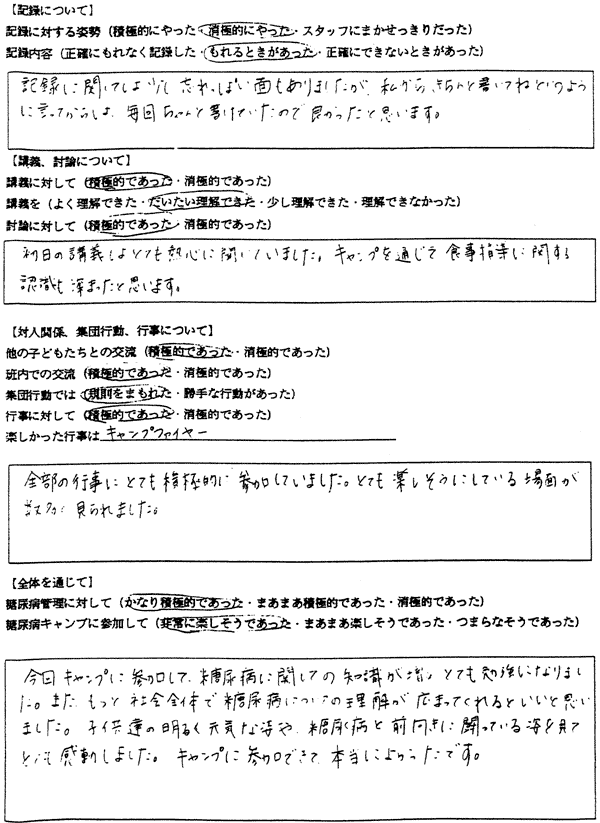 【記録について】
記録に対する姿勢（積極的にやった・消極的にやった・スタッフにまかせっきりだった）
記録内容（正確にもれなく記録した・もれるときがあった・正確にできないときがあった）
記録に関しては少し忘れっぽい面もありましたが、私からきちんと書いてねというよう
に言ってからは、毎回ちゃんと書けていたので良かったと思います。
【講義、討論について】
講義に対して（積極的であった・消極的であった）
講義を（よく理解できた・だいたい理解できた・少し理解できた・理解できなかった）
討論に対して（積極的であった・消極的であった）
初日の講義はとても熱心に聞いていました。キャンプを通じて食事指導に関する
認識も深まったと思います。
【対人関係、集団行動、行事について】
他の子どもたちとの交流（積極的であった・消極的であった）
班内での交流（積極的であった・消極的であった）
集団行動では（規則をまもれた・勝手な行動があった）
行事に対して（積極的であった・消極的であった）
楽しかった行事は キャンプファイヤー
全部の行事にとても積極的に参加していました。とても楽しそうにしている場面が
数多く見られました。
【全体を通じて】
糖尿病管理に対して（かなり積極的であった・まあまあ積極的であった・消極的であった）
糖尿病キャンプに参加して（非常に楽しそうであった・まあまあ楽しそうであった・つまらなそうであった）
今回キャンプに参加して、糖尿病に関しての知識が増え とても勉強になりまし
た。また、もっと社会全体で糖尿病についての理解が広まってくれるといいと思い
ました。子供達の明るく元気な姿や、糖尿病と前向きに闘っている姿を見て
とても感動しました。キャンプに参加できて、本当によかったです。